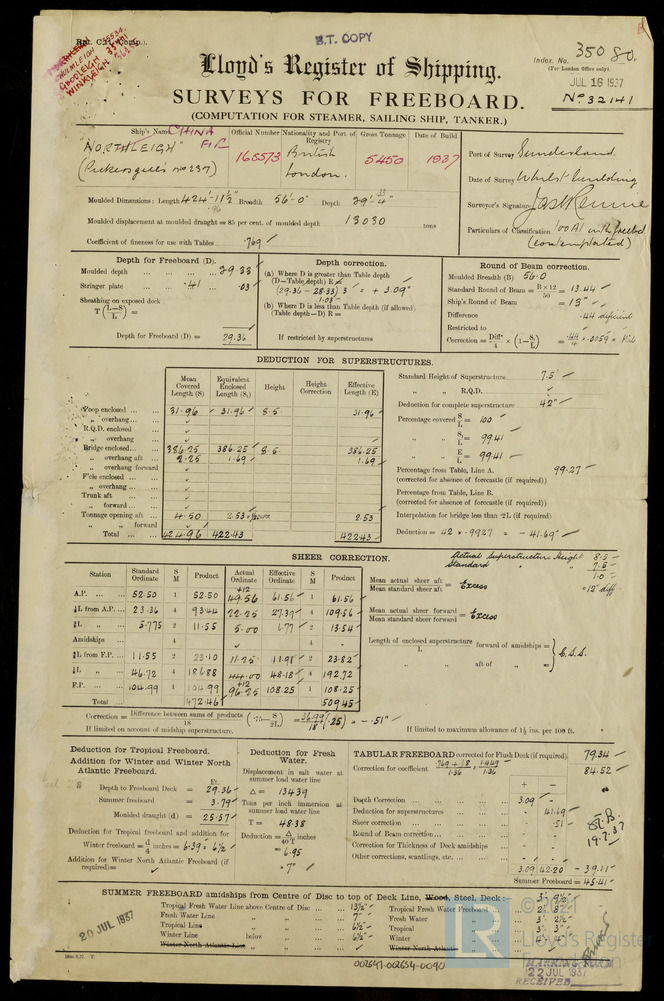 B.T. COPY
Lloyd's Register of Shipping.
SURVEYS FOR FREEBOARD.
(COMPUTATION FOR STEAMER, SAILING SHIP, TANKER.)
Index. No. 35080.
(For London Office only).
JUL 16 1937
No. 32141
WINKLEIGH
Ship's Name
"NORTHLEIGH"
Official Number
168573
Nationality and Port of Registry
British
London.
Gross Tonnage
5450
Date of Build
1937
Port of Survey Sunderland.
Date of Survey Whilst building
Surveyor's Signature
Particulars of Classification 100A1 with freeboard
(contemplated)
Moulded Dimensions: Length 424'-11½" Breadth 56'-0" Depth 29'-4"
Moulded displacement at moulded draught = 85 per cent. of moulded depth 13030 tons
Coefficient of fineness for use with Tables .769
Depth for Freeboard (D).
Moulded depth 29.33
Stringer plate .41 .03
Sheathing on exposed deck
T (L-S/L) =
Depth for Freeboard (D) = 29.36
Depth correction.
(a) Where D is greater than Table depth
(D—Table depth) R =
(29.36 - 28.33) 3 = + 3.09"
1.03
(b) Where D is less than Table depth (if allowed)
(Table depth—D) R =
If restricted by superstructures
Round of Beam correction.
Moulded Breadth (B) 56.0
Standard Round of Beam = B×12/50 = 13.44
Ship's Round of Beam = 13"
Difference .44 deficient
Restricted to
Correction = Diff/4 × (1-S₁/L) = .44/4 × .0059 = Nil
DEDUCTION FOR SUPERSTRUCTURES.
Mean Covered Length (S) Equivalent Enclosed Length (S₁) Height Height Correction Effective Length (E)
Poop enclosed 31.96 31.96 8.5 31.96
„ overhang
R.Q.D. enclosed
„ overhang
Bridge enclosed 386.25 386.25 8.5 386.25
„ overhang aft 2.25 1.69 1.69
„ overhang forward
F'cle enclosed
„ overhang
Trunk aft
„ forward
Tonnage opening aft 4.50 2.53 2.53
„ „ forward
Total 424.96 422.43 422.43
Standard Height of Superstructure 7.5'
„ „ R.Q.D.
Deduction for complete superstructure 42"
Percentage covered S/L = 100
„ S₁/L = 99.41
„ E/L = 99.41
Percentage from Table, Line A. 99.27
(corrected for absence of forecastle (if required))
Percentage from Table, Line B.
(corrected for absence of forecastle (if required))
Interpolation for bridge less than ·2L (if required)
Deduction = 42 × .9927 = -41.69"
SHEER CORRECTION.
Actual Superstructure Height 8.5
Standard „ „ 7.5
1.0
= 12" diff.
Station Standard Ordinate S M Product Actual Ordinate Effective Ordinate S M Product
A.P. 52.50 1 52.50 +12 49.56 61.56 1 61.56
⅙L from A.P. 23.36 4 93.44 22.25 27.39 4 109.56
⅓L „ 5.775 2 11.55 5.00 6.77 2 13.54
Amidships 4 4 -
⅓L from F.P. 11.55 2 23.10 11.25 11.91 2 23.82
⅙L „ 46.72 4 186.88 44.00 48.18 4 192.72
F.P. 104.99 1 104.99 +12 96.25 108.25 1 108.25
Total 472.46 509.45
Mean actual sheer aft / Mean standard sheer aft = Excess
Mean actual sheer forward / Mean standard sheer forward = Excess
Length of enclosed superstructure / L forward of amidships =
„ „ aft of „ = C.S.S.
Correction = Difference between sums of products / 18 (·75-S/2L) = 36.99/18 (.25) = - .51"
If limited on account of midship superstructure.
If limited to maximum allowance of 1½ ins. per 100 ft.
Deduction for Tropical Freeboard.
Addition for Winter and Winter North Atlantic Freeboard.
Ft.
Depth to Freeboard Deck = 29.36
Summer freeboard = 3.79
Moulded draught (d) = 25.57
Deduction for Tropical freeboard and addition for
Winter freeboard = d/4 inches = 6.39 = 6½"
Addition for Winter North Atlantic Freeboard (if required) =
Deduction for Fresh Water.
Displacement in salt water at summer load water line
Δ = 13439
Tons per inch immersion at summer load water line
T = 48.38
Deduction = Δ/40T inches
= 6.95
= 7"
TABULAR FREEBOARD corrected for Flush Deck (if required) 79.34
Correction for coefficient .769 + .68 / 1.36 = 1.449 / 1.36 84.52
+ −
Depth Correction 3.09
Deduction for superstructures 41.69
Sheer correction .51
Round of Beam correction
Correction for Thickness of Deck amidships
Other corrections, scantlings, etc.
3.09 42.20 -39.11
Summer Freeboard = 45.41
19.7.37
SUMMER FREEBOARD amidships from Centre of Disc to top of Deck Line, Wood, Steel, Deck: 3'- 9½"
Tropical Fresh Water Line above Centre of Disc 13½"
Fresh Water Line „ „ 7"
Tropical Line „ „ 6½"
Winter Line below „ 6½"
Winter North Atlantic Line „ „
Tropical Fresh Water Freeboard 2'- 8"
Fresh Water „ 3'- 2½"
Tropical „ 3'- 3"
Winter „
Winter North Atlantic „
20 JUL 1937
002647-002654-0090
22 JUL 1937
RECEIVED
© 2021
Lloyd's Register
Foundation